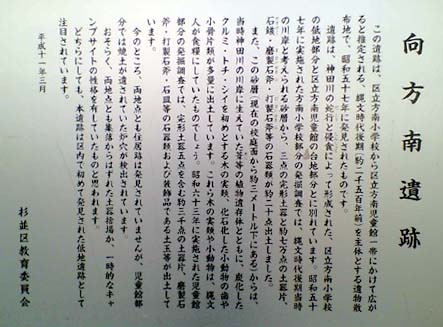 向方南遺跡
この遺跡は、区立方南小学校から区立方南児童館一帯にかけて広が
ると推定される、縄文時代後期（約三千五百年前）を主体とする遺物散
布地で、昭和五十七年に発見されたものです。
遺跡は、神田川の蛇行と侵食によって形成された、区立方南小学校
の低地部分と区立方南児童館の台地部分とに別れています。昭和五十
七年に実施された方南小学校部分の発掘調査では、縄文時代後期当時
の川岸と考えられる砂層から、三点の完形土器と約七百点の土器片、
石鏃・磨製石斧・打製石斧等の石器類が約二十点出土しました。
また、この砂層（現在の校庭面から約三メートル下にある）からは、
当時神田川の川岸に生えていた葦等の植物遺存体とともに、炭化した
クルミ・トチ・シイを初めとする木の実類や、化石化した小動物の歯や
小骨片類が多量に出土しています。これら木の実類や小動物は、縄文
人が食糧にしていたものでしょう。昭和六十三年に実施された児童館
部分の発掘調査では、完形土器五点を含む約三千点の土器片、磨製石
斧・打製石斧・石皿等の石器類および装飾品である土玉等が出土して
います。
今のところ、両地点とも住居跡は発見されていませんが、児童館部
分では焼土が遺されていた炉穴が検出されています。
おそらく、両地点とも集落からはずれた土器捨場か、一時的なキャ
ンプサイトの性格を有していたものと思われます。
どちらにしても、本遺跡は区内で初めて発見された低地遺跡として
注目されています。
平成十一年三月
杉並区教育委員会